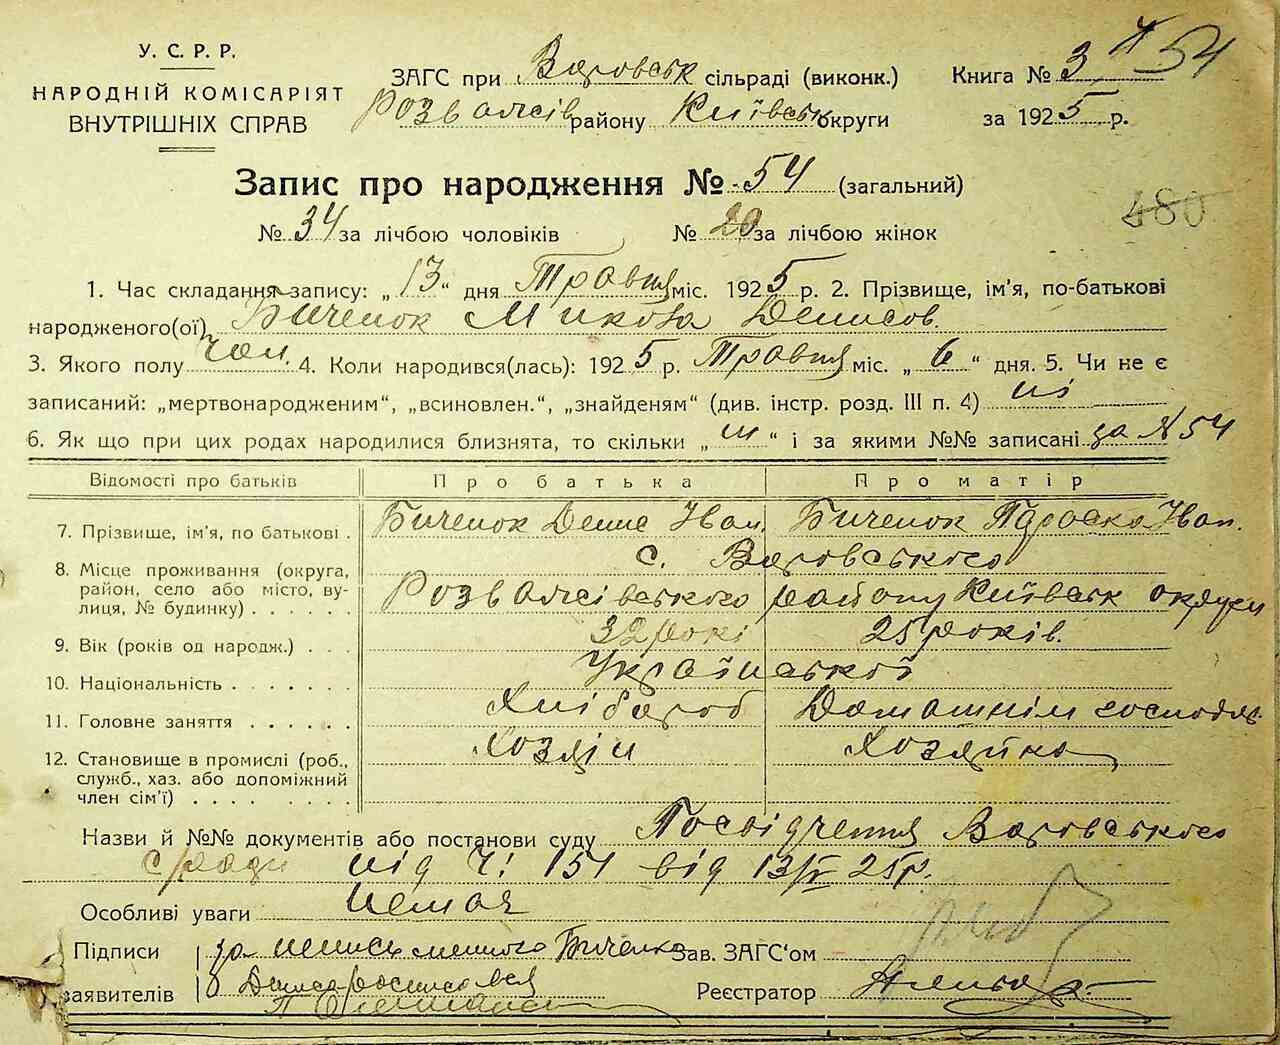 У. С. Р. Р.
НАРОДНІЙ КОМІСАРІЯТ
ВНУТРІШНІХ СПРАВ
ЗАГС при Варовськ сільраді (виконк.)
Розважів району Київськ округи
Книга № 3 54
за 1925 р.
Запис про народження № 54 (загальний)
№ 34 за лічбою чоловіків № 20 за лічбою жінок
480
1. Час складання запису: „13“ дня Травня міс. 1925 р. 2. Прізвище, ім’я, по-батькові
народженого(ої) Биченок Микола Денисов.
3. Якого полу Чол. 4. Коли народився(лась): 1925 р. Травня міс. „6“ дня. 5. Чи не є
записаний: „мертвонародженим“, „всиновлен.“, „знайденям“ (див. інстр. розд. III п. 4) ні
6. Як що при цих родах народилися близнята, то скільки „ “ і за якими №№ записані за № 54
Відомості про батьків Про батька Про матір
7. Прізвище, ім’я, по батькові . Биченок Денис Іван. Биченок Параска Іван.
8. Місце проживання (округа, район, село або місто, вулиця, № будинку) . . . . . с. Варовського
Розважівського району Київськ округи
9. Вік (років од народж.) . . . 32 рокі 25 років.
10. Національність . . . . . . . Української
11. Головне заняття . . . . . . Хлібороб Домашнім господар.
12. Становище в промислі (роб., служб., хаз. або допоміжний член сім’ї) . . . . . . . . Хозяін Хозяйка
Назви й №№ документів або постанови суду Посвідчення Варовського
с/ради під Ч: 151 від 13/V 25р.
Особливі уваги Немає
Підписи за неписьменного Биченка Зав. ЗАГС’ом
заявителів Дениса росписався Реєстратор